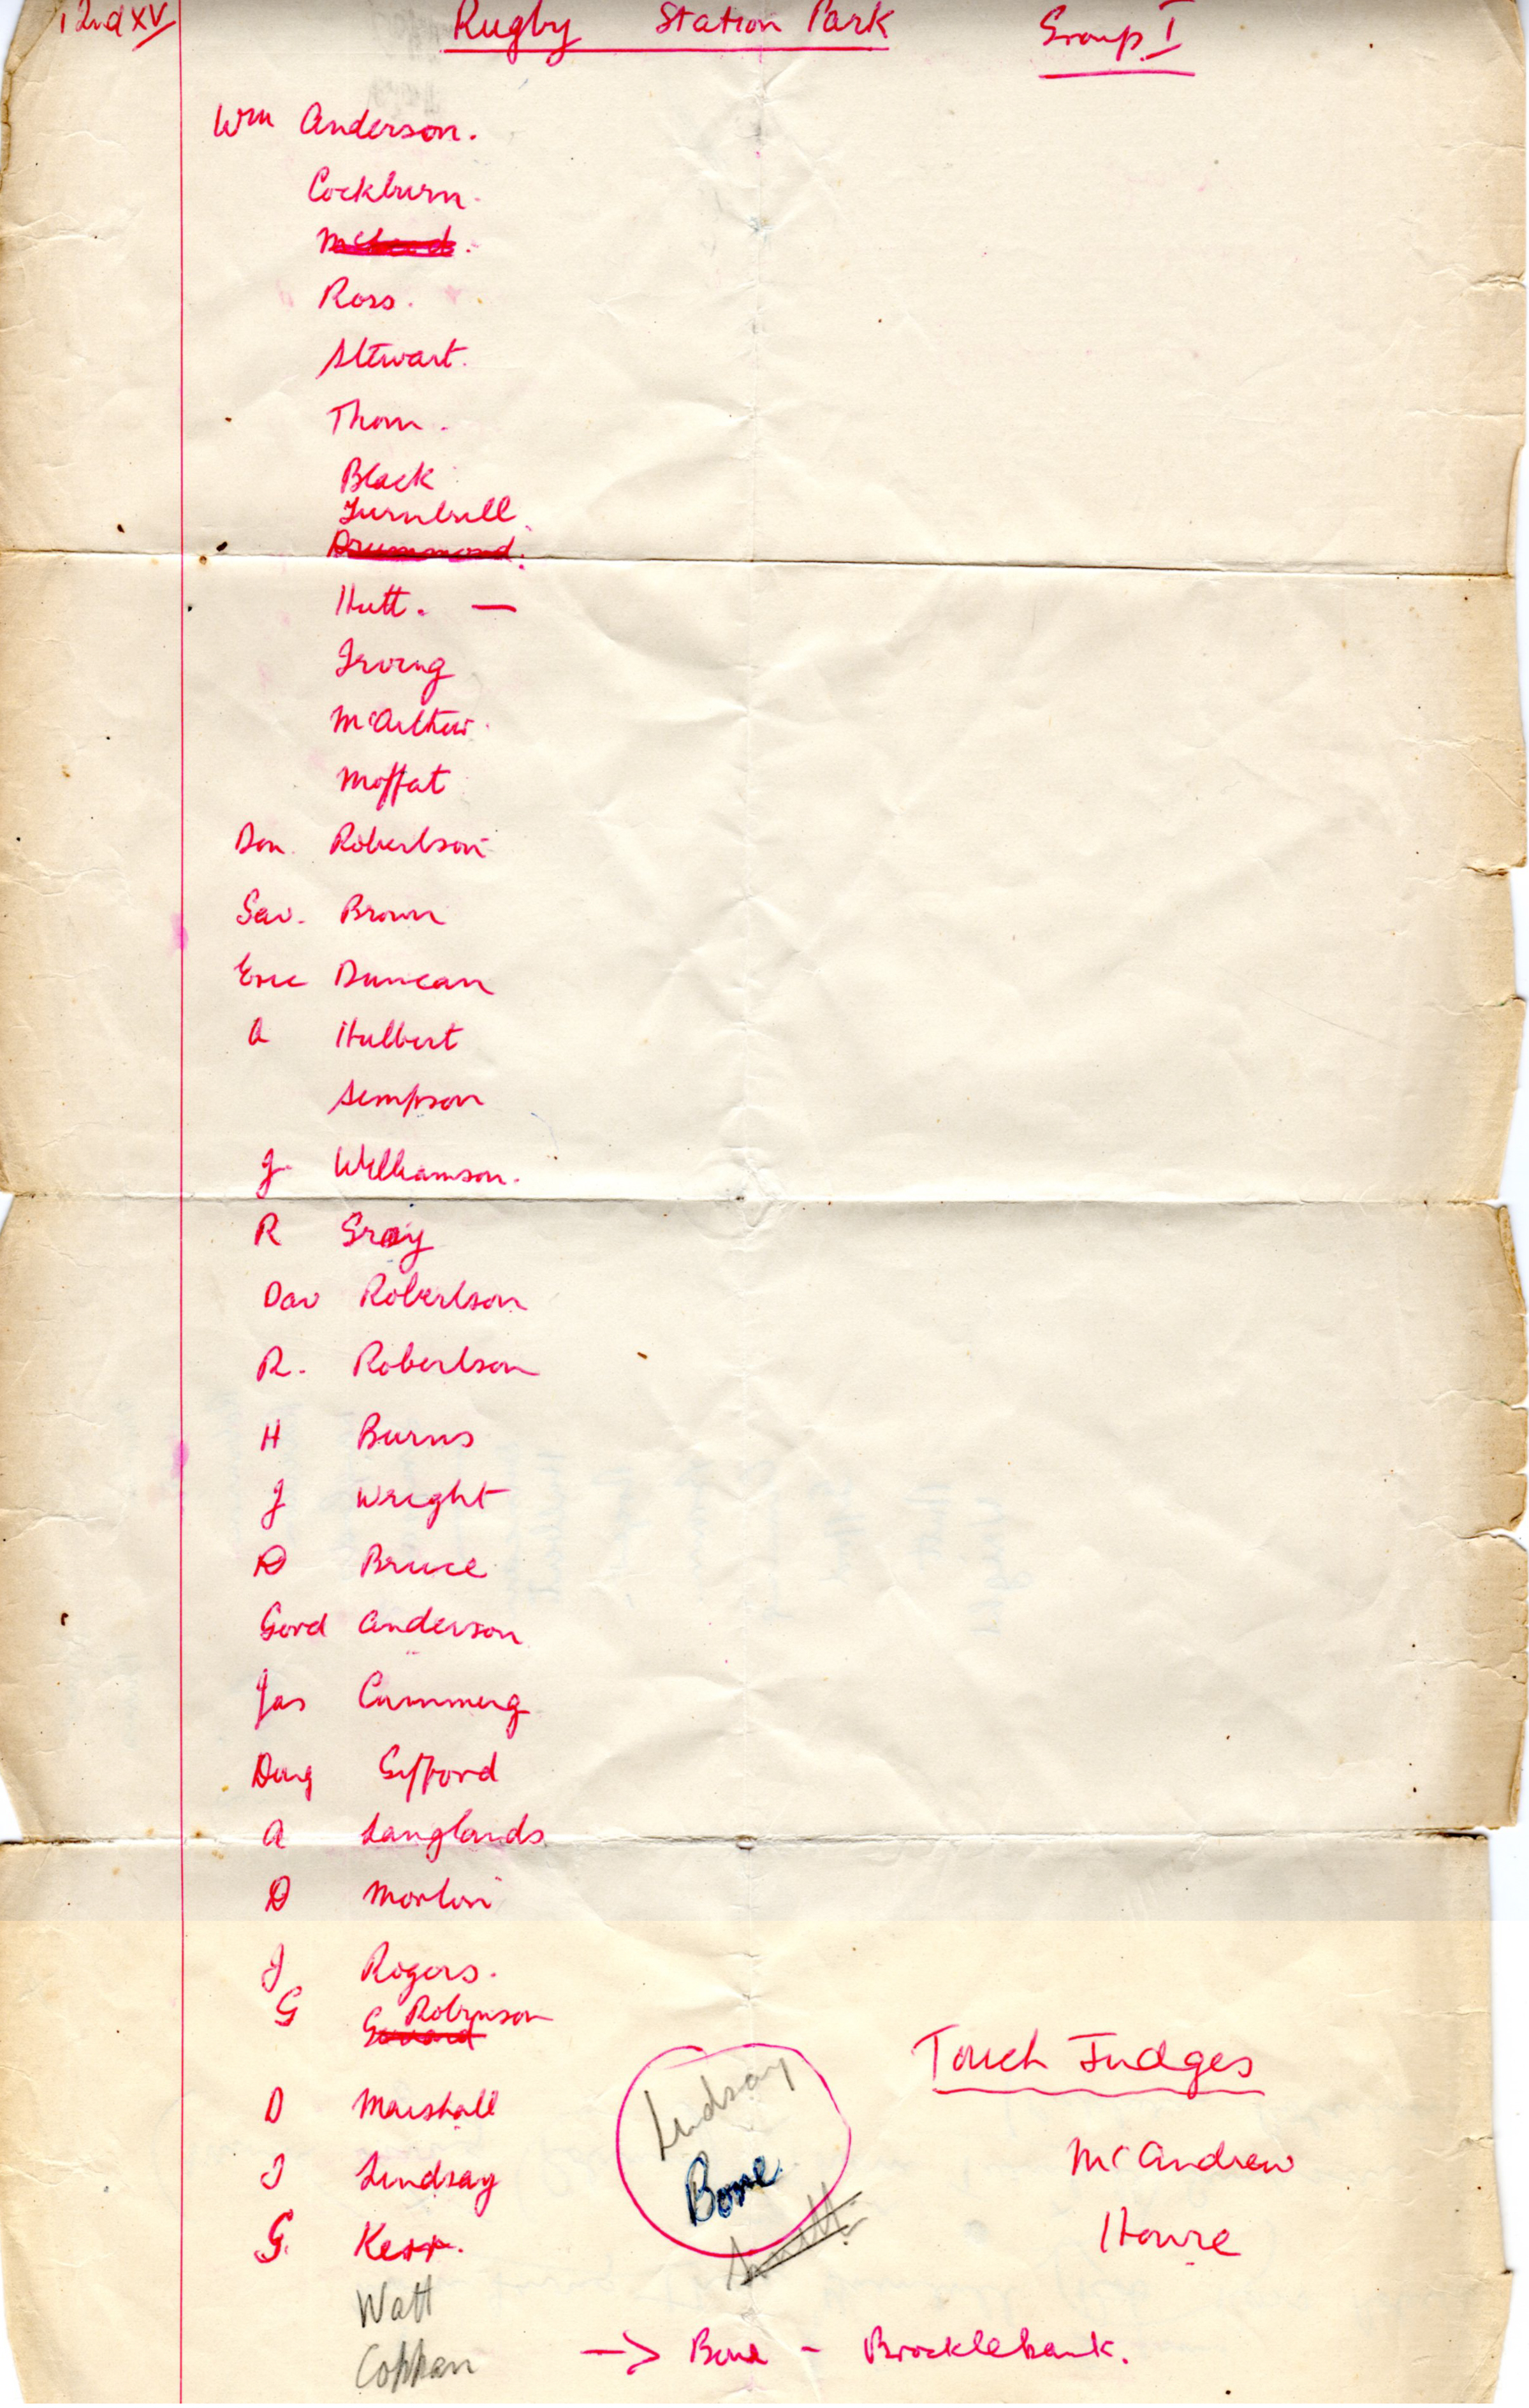 2nd XV Rugby Station Park Group I
Wm Anderson.
Cockburn.
McLeod.
Ross.
Stewart.
Thom.
Black
Turnbull
Drummond.
Hutt. —
Irving
McArthur.
Moffat
Don. Robertson
Gav. Brown
Eric Duncan
A Hulbert
Simpson
J. Williamson.
R Gray
Dav Robertson
R. Robertson
H Burns
J Wright
D Bruce
Gord Anderson
Jas Cumming
Doug Gifford
A Langlands
D Morton
J Rogers.
G Robinson
D Marshall
I Lindsay
G. Kerr.
Watt
Coppan
Lindsay
Bone.
Smith
Touch Judges
McAndrew
Howie
→ Bone – Brocklebank.